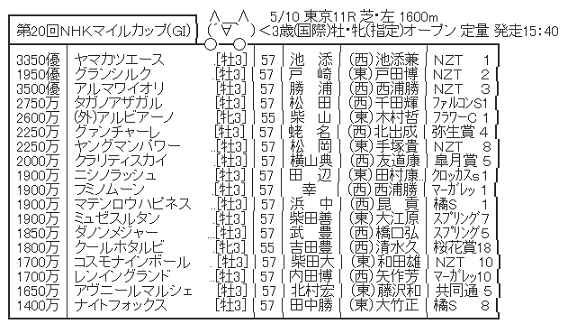 第20回NHKマイルカップ(GI) 5/10 東京11R 芝・左 1600m
<3歳(国際)牡・牝(指定)オープン 定量 発走15:40
3350優 ヤマカツエース [牡3] 57 池添 (西)池添兼 NZT 1
1950優 グランシルク [牡3] 57 戸崎 (東)戸田博 NZT 2
3500優 アルマワイオリ [牡3] 57 勝浦 (西)西浦勝 NZT 3
2750万 タガノアザガル [牡3] 57 松田 (西)千田輝 ファルコンS1
2600万 (外)アルビアーノ [牝3] 55 柴山 (東)木村哲 フラワーC 1
2250万 グァンチャーレ [牡3] 57 蛯名 (西)北出成 弥生賞 4
2250万 ヤングマンパワー [牡3] 57 松岡 (東)手塚貴 NZT 8
2000万 クラリティスカイ [牡3] 57 横山典 (西)友道康 皐月賞 5
1900万 ニシノラッシュ [牡3] 57 田辺 (東)田村康 クロッカスs1
1900万 フミノムーン [牡3] 57 幸 (西)西浦勝 マーガレッ 1
1900万 マテンロウハピネス [牡3] 57 浜中 (西)昆貢 橘S 1
1900万 ミュゼスルタン [牡3] 57 柴田善 (東)大江原 スプリング7
1850万 ダノンメジャー [牡3] 57 武豊 (西)橋口弘 スプリング5
1800万 クールホタルビ [牝3] 55 吉田豊 (西)清水久 桜花賞18
1700万 コスモナインボール [牡3] 57 柴田大 (東)和田雄 NZT 10
1700万 レンイングランド [牡3] 57 内田博 (西)矢作芳 マーガレッ10
1650万 アヴニールマルシェ [牡3] 57 北村宏 (東)藤沢和 共同通 5
1400万 ナイトフォックス [牡3] 57 田中勝 (東)大竹正 橘S 8